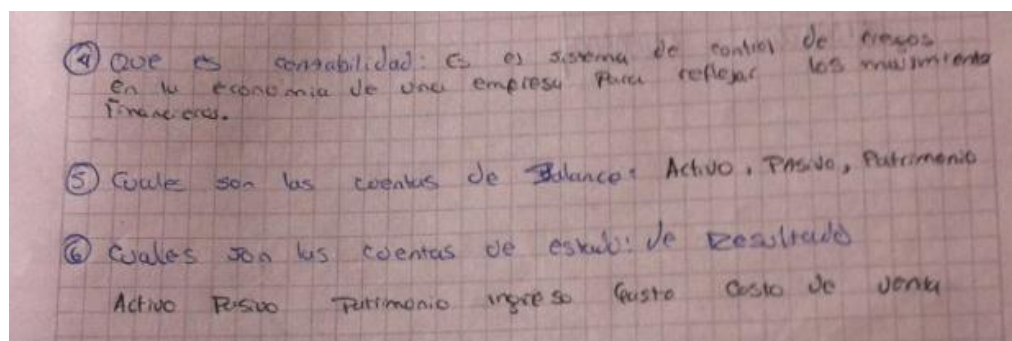 ④ Que es contabilidad: Es el sistema de control de riesgos
en la economia de una empresa Para reflejar los muimienta
Financieros.
⑤ Cuales son las cuentas de Balance: Activo, PAsivo, Patrimonio
⑥ Cuales son las cuentas de estado: de Resultado
Activo Pasivo Patrimonio ingreso Gasto Costo de venta